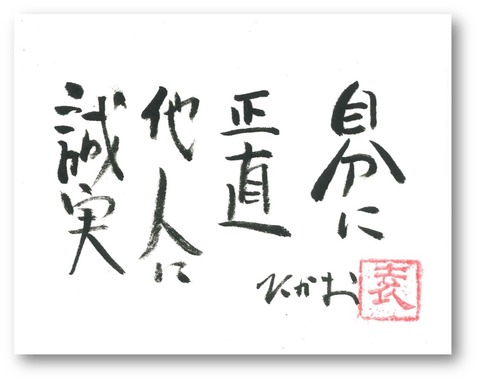 自分に
正直
他人に
誠実
たかお